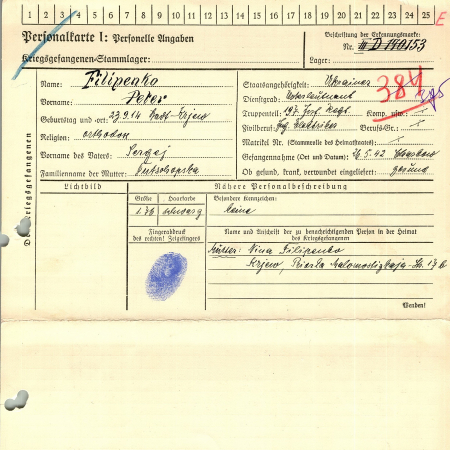 1 2 3 4 5 6 7 8 9 10 11 12 13 14 15 16 17 18 19 20 21 22 23 24 25
E
Personalkarte I: Personelle Angaben
Kriegsgefangenen-Stammlager:
Beschriftung der Erkennungsmarke:
Nr. D 190153
Lager:
Des Kriegsgefangenen
Name: Filipenko
Vorname: Peter
Geburtstag und -ort: 23.9.14
Religion: orthodox
Vorname des Vaters: Sergej
Familienname der Mutter:
Staatsangehörigkeit: Ukrainer
Dienstgrad: Oberleutnant
Truppenteil: 197. Inf. Regt. Komp. usw.:
Zivilberuf: Ing. Elektriker Berufs-Gr.:
Matrikel Nr. (Stammrolle des Heimatstaates):
Gefangennahme (Ort und Datum): 26.5.42 Charkow
Ob gesund, krank, verwundet eingeliefert: gesund
384
385
Lichtbild
Nähere Personalbeschreibung
Größe Haarfarbe
1.76 schwarz
Besondere Kennzeichen:
keine
Fingerabdruck
des rechten! Zeigefingers
Name und Anschrift der zu benachrichtigenden Person in der Heimat
des Kriegsgefangenen
Mutter: Nina Filipenko
Kijew,
Wenden!